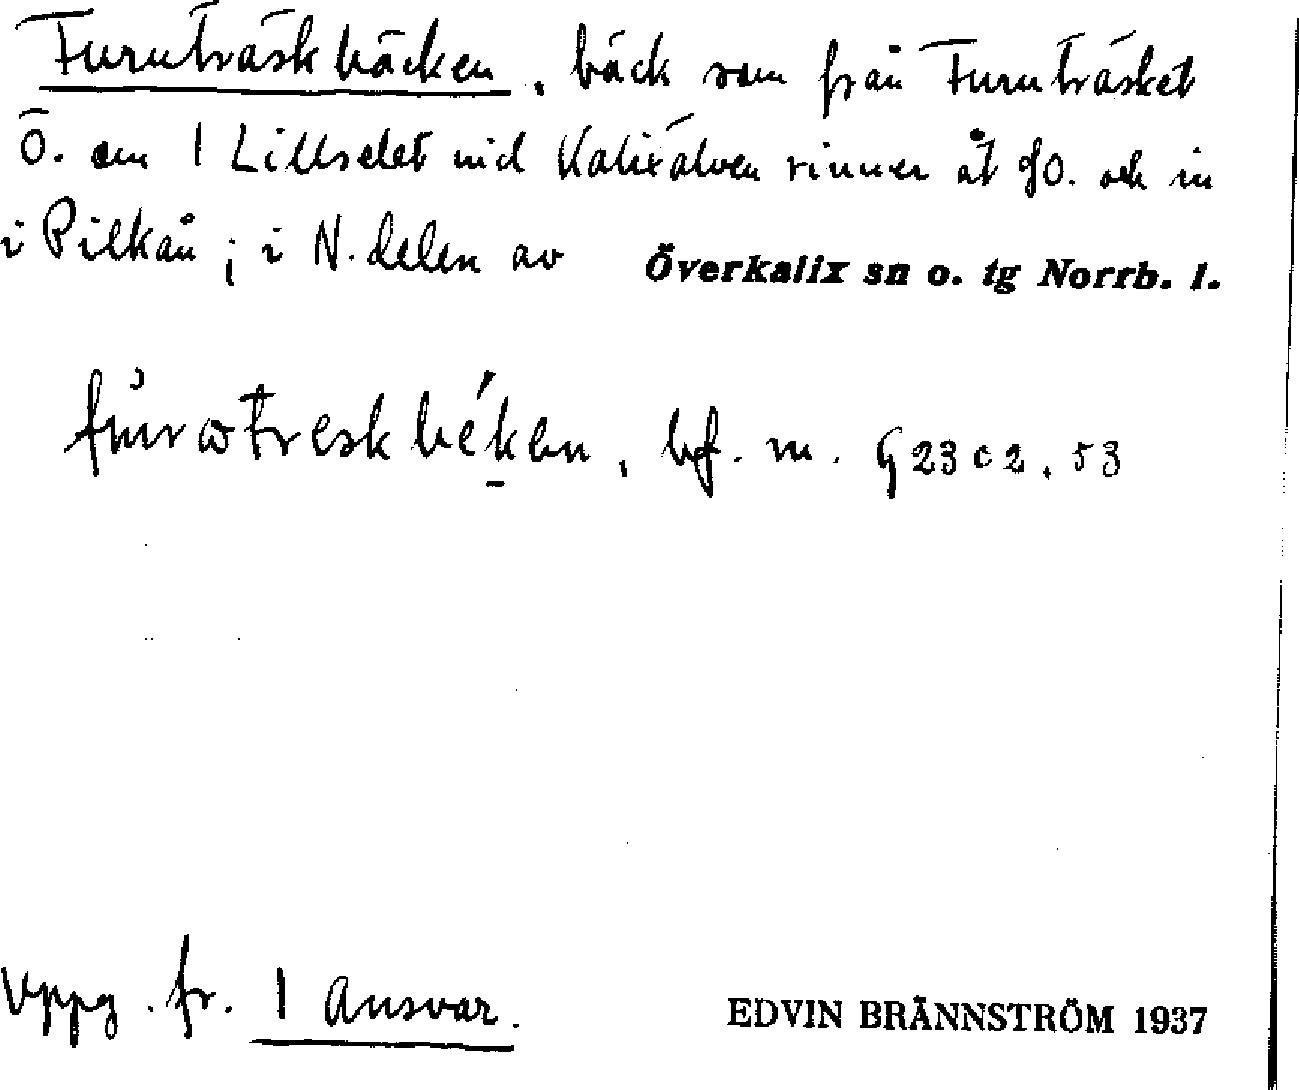 Furuträskbäcken, bäck som från Furuträsket
Ö. om 1 Lillselet vid Kalixälven rinner åt SO. och in
i Pilkån; i N. delen av Överkalix sn o. tg Norrb. l.
bf. m. G 23 c 2, 53
Uppg. fr. 1 Ansvar.
EDVIN BRÄNNSTRÖM 1937